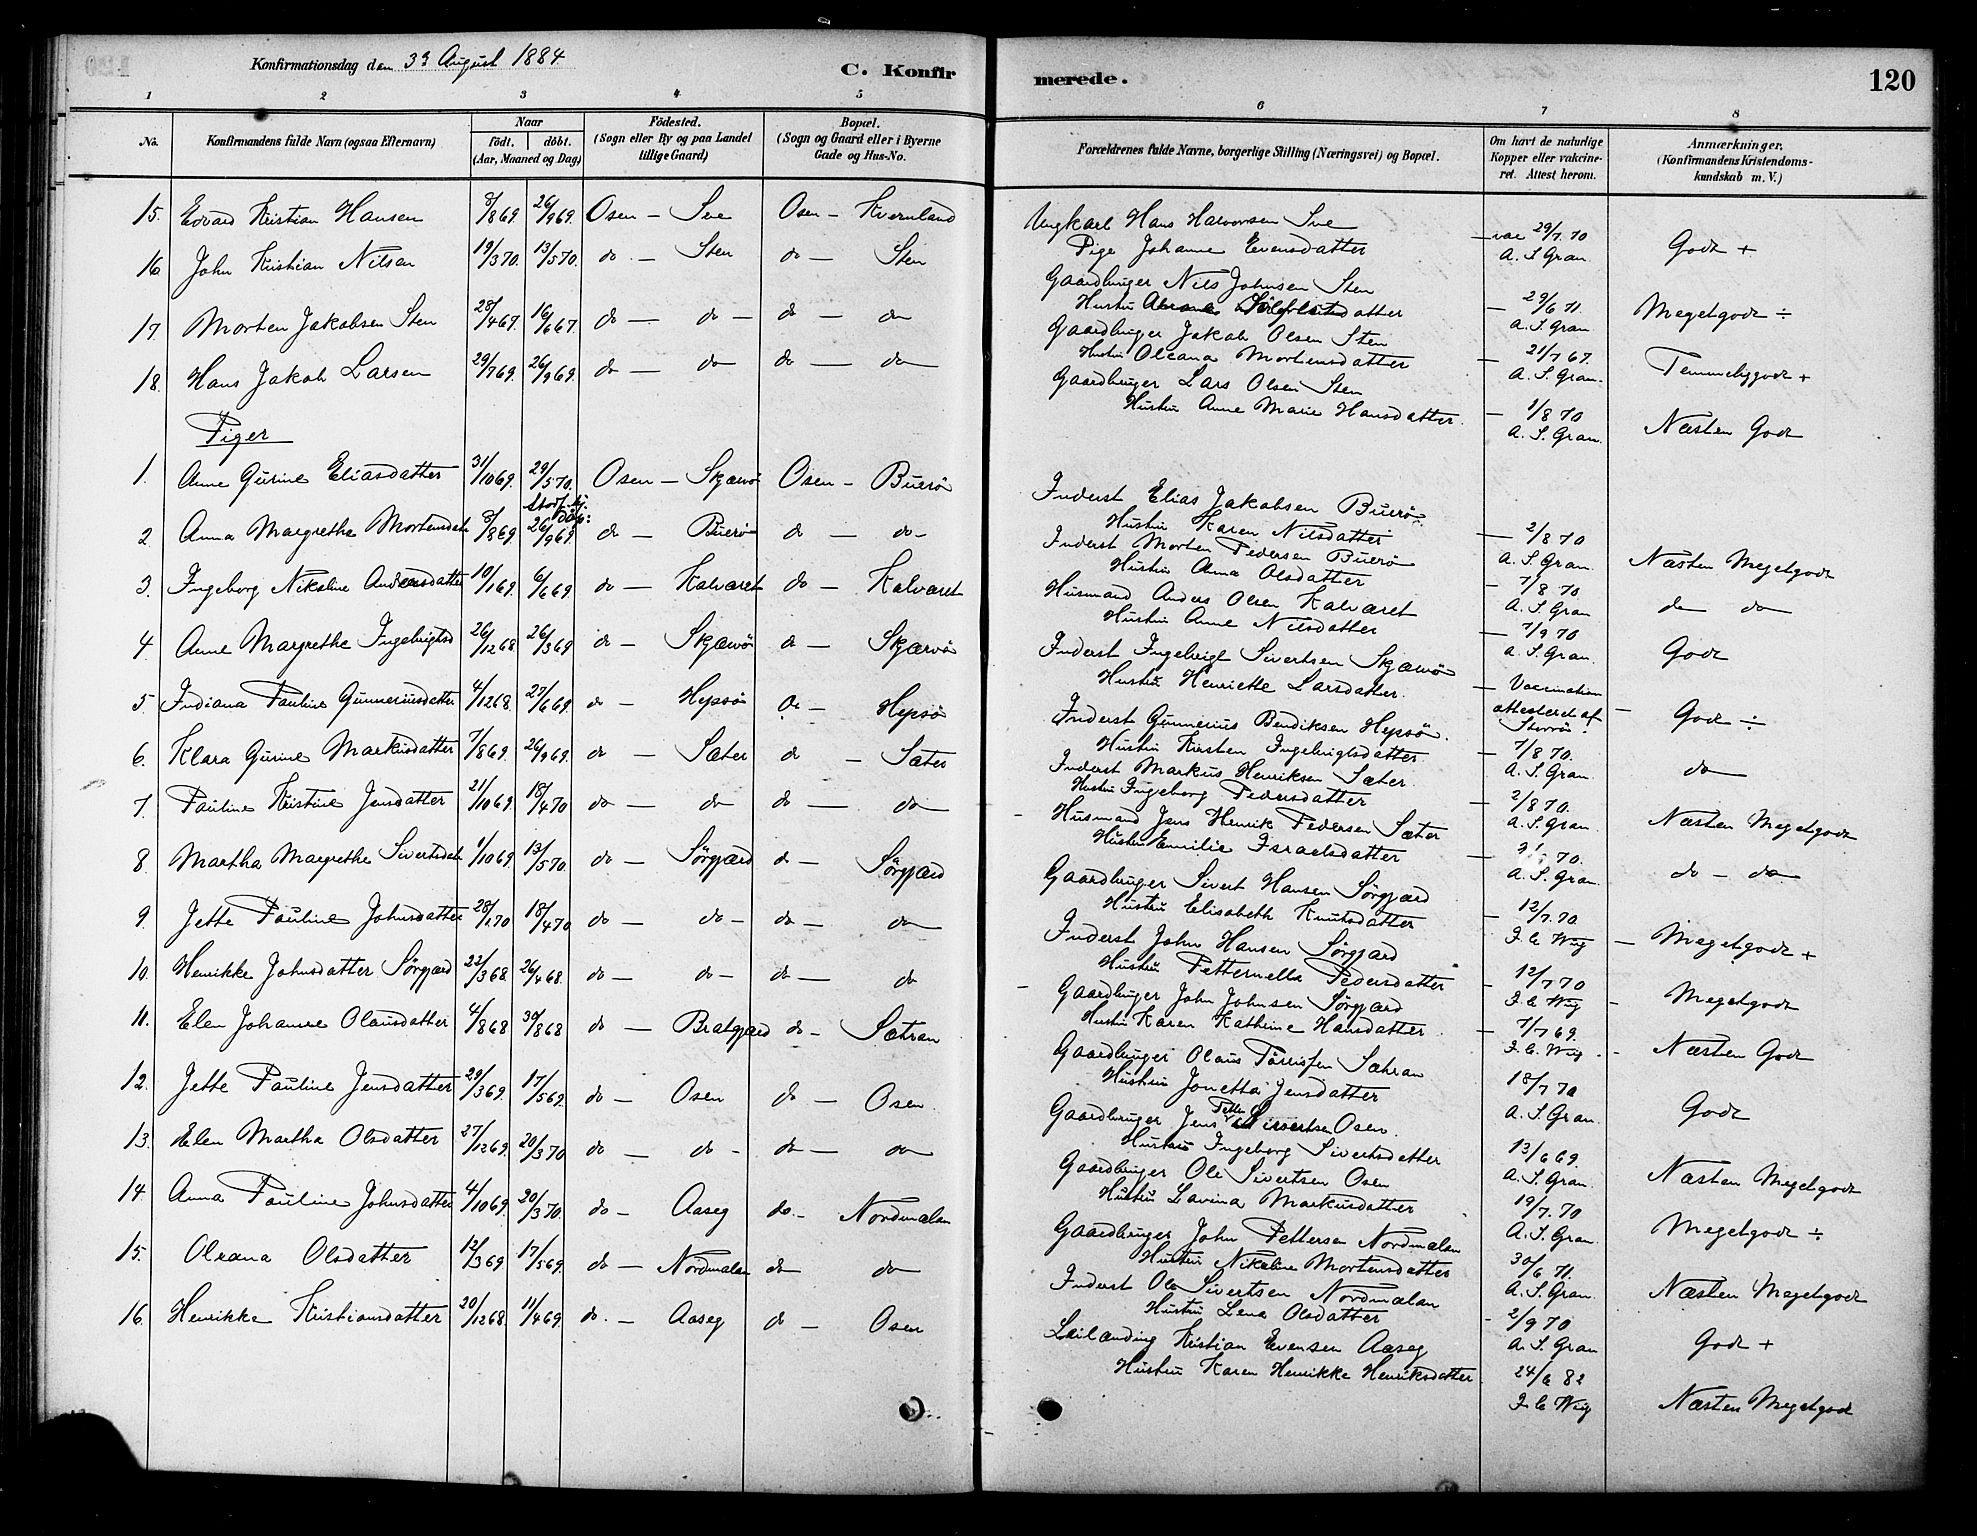 Konfirmationsdag den 3die August 1884
C. Konfir
merede.
120
1 2 3 4 5
6 7 8
No. Konfirmandens fulde Navn (ogsaa Efternavn) Naar Födested. Bopæl.
födt. döbt. (Sogn eller By og paa Landet (Sogn og Gaard eller i Byerne
(Aar, Maaned og Dag) tillige Gaard) Gade og Hus-No.
Forældrenes fulde Navne, borgerlige Stilling (Næringsvei) og Bopæl. Om havt de naturlige Anmærkninger.
Kopper eller vakcine- (Konfirmandens Kristendoms-
ret. Attest herom. kundskab m. V.)
15. Edvard Kristian Hansen 8/8 69. 26/9 69. Osen - Sve Osen - Kvernland
16. John Kristian Nilsen 19/3 70. 13/5 70. do - Sten do - Sten
17. Morten Jakobsen Sten 28/4 67. 16/6 67. do - do - do - do
18. Hans Jakob Larsen 29/7 69. 26/9 69. do - do do - do
Piger
1. Anne Gurine Eliasdatter 31/10 69. 29/5 70. Osen - Skjærvö Osen - Buerö
2. Anna Margrethe Mortensdat 8/8 69. 26/9 69. do - Buerö do - do -
3. Ingeborg Nikoline Andersdatter 10/1 69. 6/6 69. do - Kalvaret do - Kalvaret
4. Anne Margrethe Ingebrigtsd 26/12 68 26/3 69 do - Skjærvö do - Skjærvö
5. Indiana Pauline Gunneriusdatter 4/12 68. 27/6 69. do - Hepsö do - Hepsö
6. Klara Gurine Markusdatter 7/8 69. 26/9 69. do - Sæter do - Sæter
7. Pauline Kristine Jensdatter 21/10 69. 18/4 70 do - do do - do
8. Martha Margrethe Sivertsdat 1/10 69. 13/5 70. do - Sörgjærd do - Sörgjærd
9. Jette Pauline Johnsdatter 28/1 70 18/4 70 do - do - do - do
10. Henrikke Johnsdatter Sörgjærd 22/3 68. 26/4 68. do - do - do - do
11. Elen Johanne Olausdatter 4/8 68 30/8 68 do - Bratgjærd do - Sætran
12. Jette Pauline Jensdatter 29/3 69. 17/5 69. do - Osen do - Osen
13. Elen Martha Olsdatter 27/12 69. 20/3 70 do - do - do - do
14. Anna Pauline Johnsdatter 4/10 69. 20/3 70. do - Aaseg do. - Nordmalen
15. Oleana Olsdatter 12/3 69. 17/5 69. do - Nordmalen do do
16. Henrikke Kristiansdatter 20/12 68. 11/4 69. do. - Aaseg do - Osen
Ungkarl Hans Halvorsen Sve
Pige Johanne Evensdatter - vac 29/7. 70 A. S. Gran Godt +
Gaardbruger Nils Johnsen Sten
Hustru - 29/6 71. A. S. Gran Megetgodt ÷
Gaardbruger Jakob Olsen Sten
Hustru Oleana Mortensdatter - 21/7 67. A. S. Gran. Temmeliggodt +
Gaardbruger Lars Olsen Sten
Hustru Anne Marie Hansdatter. - 1/8 70 A. S. Gran. Næsten Godt
Inderst Elias Jakobsen Buerö.
Hustru Karen Nilsdatter - 2/8 70 A. S. Gran Næsten Megetgodt
Inderst Morten Pedersen Buerö
Hustru Anna Olsdatter - 7/8 70 A. S. Gran do do
Husmand Anders Olsen Kalvaret
Hustru Anne Nilsdatter - 7/9 70 A. S. Gran. Godt
Inderst Ingebrigt Sivertsen Skjærvö
Hustru Henriette Larsdatter. - Vaccination attesteret af Storrö. - Godt ÷
Inderst Gunnerius Bendiksen Hepsö.
Hustru Kirsten Ingebrigtsdatter - 7/8 70. A. S. Gran do
Inderst Markus Henriksen Sæter.
Hustru Ingeborg Pedersdatter - 2/8 70. A. S. Gran. Næsten Megetgodt
Husmand Jens Henrik Pedersen Sæter
Hustru Emilie Israelsdatter - 70. A. S. Gran do - do
Gaardbruger Sivert Hansen Sörgjærd
Hustru Elisabeth Knutsdatter - 12/7. 70 F. C. Wiig - Megetgodt +
Inderst John Hansen Sörgjærd
Hustru Petternella Pedersdatter - 12/7 70 F. C. Wiig - Megetgodt
Gaardbruger John Johnsen Sörgjærd
Hustru Karen Kathrine Hansdatter. - 7/7 69. F. C. Wiig. - Næsten Godt
Gaardbruger Olaus Törrissen Sætran
Hustru Jonetta Jensdatter 18/7 70 A. S. Gran. Godt
Gaardbruger Jens Petter Sivertsen Osen.
Hustru Ingeborg Sivertsdatter 13/6 69. A. S. Gran. Næsten Megetgodt
Gaardbruger Ole Sivertsen Osen
Hustru Lavina Markusdatter 19/7. 70 A. S. Gran. Megetgodt ÷
Gaardbruger John Pettersen Nordmalen
Hustru Nikoline Mortensdatter 30/6 71. A. S. Gran. Næsten Megetgodt
Inderst Ole Sivertsen Nordmalen
Hustru Lena Olsdatter - 2/9 70 A. S. Gran Godt +
Leilænding Kristian Evensen Aaseg
Hustru Karen Henrikke Henriksdatter 24/6 82 F. C. Wiig Næsten Megetgodt